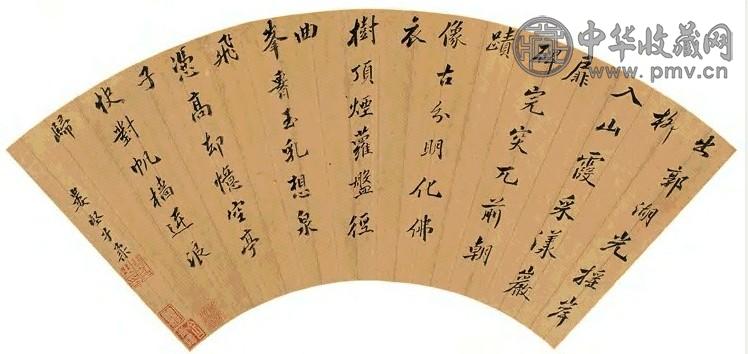 出郭湖光搖岸
柳
入山霞采漾巖
扉
完突兀前朝
蹟
像古分明化佛
衣
樹頂煙蘿盤徑
曲
峯玉乳想泉
飛
憑高却憶空亭
子
快對帆檣逐浪
歸
婁堅子柔
中华收藏网
www.pmv.cn